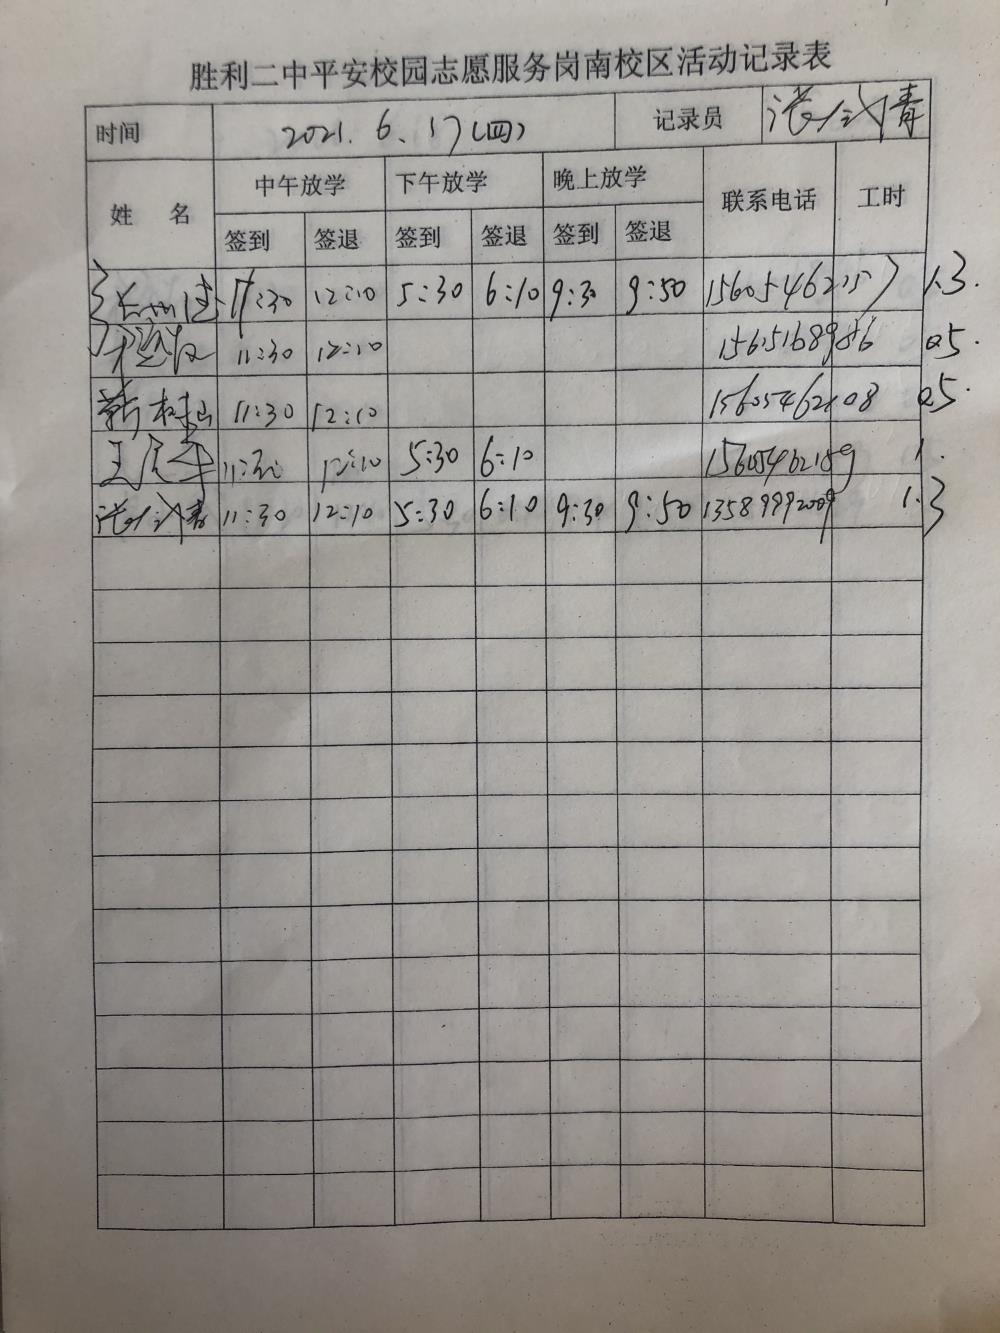 胜利二中平安校园志愿服务岗南校区活动记录表
时间 2021.6.17(四) 记录员 张 青
姓 名 中午放学 下午放学 晚上放学 联系电话 工时
签到 签退 签到 签退 签到 签退
11:30 12:10 5:30 6:10 9:30 9:50 1.3.
11:30 12:10 15615168986 0.5.
靳 11:30 12:10 15605462108 0.5.
王 军 11:30 12:10 5:30 6:10 15605462189 1.
张 青 11:30 12:10 5:30 6:10 9:30 9:50 13589992009 1.3